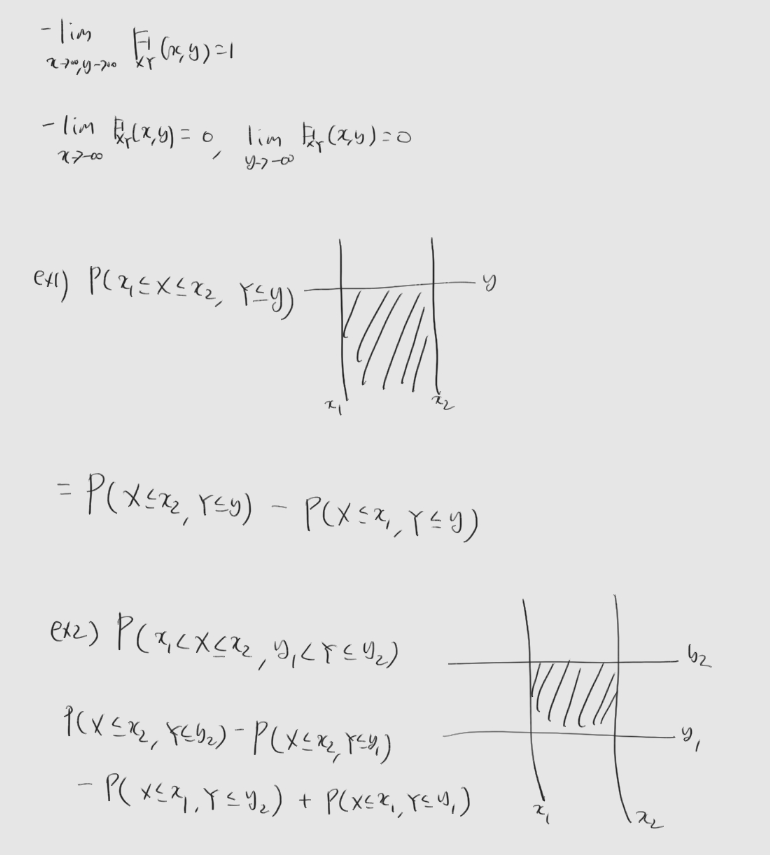 - lim F_XY(x,y)=1
x→∞,y→∞
- lim F_XY(x,y)=0, lim F_XY(x,y)=0
x→-∞ y→-∞
ex1) P(x₁≤X≤x₂, Y≤y) y
x₁ x₂
= P(X≤x₂, Y≤y) - P(X≤x₁, Y≤y)
ex2) P(x₁<X≤x₂, y₁<Y≤y₂) y₂
P(X≤x₂, Y≤y₂) - P(X≤x₂, Y≤y₁) y₁
- P(X≤x₁, Y≤y₂) + P(X≤x₁, Y≤y₁)
x₁ x₂